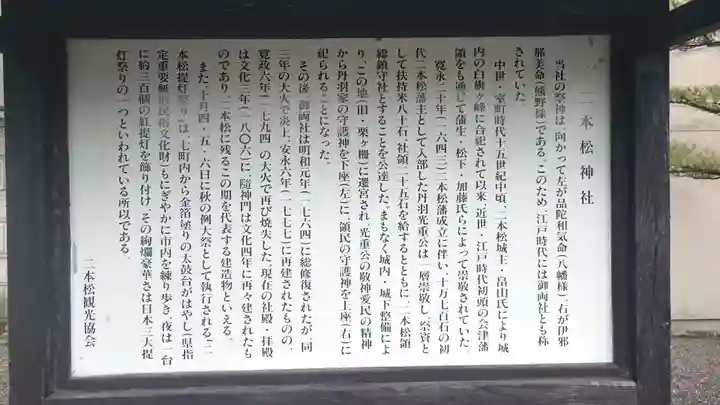 二本松神社
当社の祭神は、向かって左が品陀和気命(八幡様)、右が伊邪
那美命(熊野様)である。このため、江戸時代には御両社とも称
されていた。
中世・室町時代十五世紀中頃、二本松城主・畠山氏により城
内の白旗ヶ峰に合祀されて以来、近世・江戸時代初頭の会津藩
領をも通して蒲生・松下・加藤氏らによって崇敬されていた。
寛永二十年(一六四三)二本松藩成立に伴い、十万七百石の初
代二本松藩主として入部した丹羽光重公は一層崇敬し、祭資と
して扶持米八十石・社領二十五石を給するとともに、二本松領
総鎮守社とすることを公達した。まもなく城内・城下整備によ
り、この地(旧・栗ヶ柵)に遷宮され、光重公の敬神愛民の精神
から丹羽家の守護神を下座(左)に、領民の守護神を上座(右)に
祀られることになった。
その後、御両社は明和元年(一七六四)に総修復されたが、同
三年の大火で炎上、安永六年(一七七七)に再建されたものの、
寛政六年(一七九四)の大火で再び焼失した。現在の社殿、拝殿
は文化三年(一八〇六)に、随神門は文化四年に再々建されたも
のであり、二本松に残るこの期を代表する建造物といえる。
また、十月四・五・六日に秋の例大祭として執行される「二
本松提灯祭り」は、七町内から金箔塗りの太鼓台がはやし(県指
定重要無形民俗文化財)もにぎやかに市内を練り歩き、夜は一台
に約三百個の紅提灯を飾り付け、その絢爛豪華さは日本三大提
灯祭りの一つといわれている所以である。
二本松観光協会